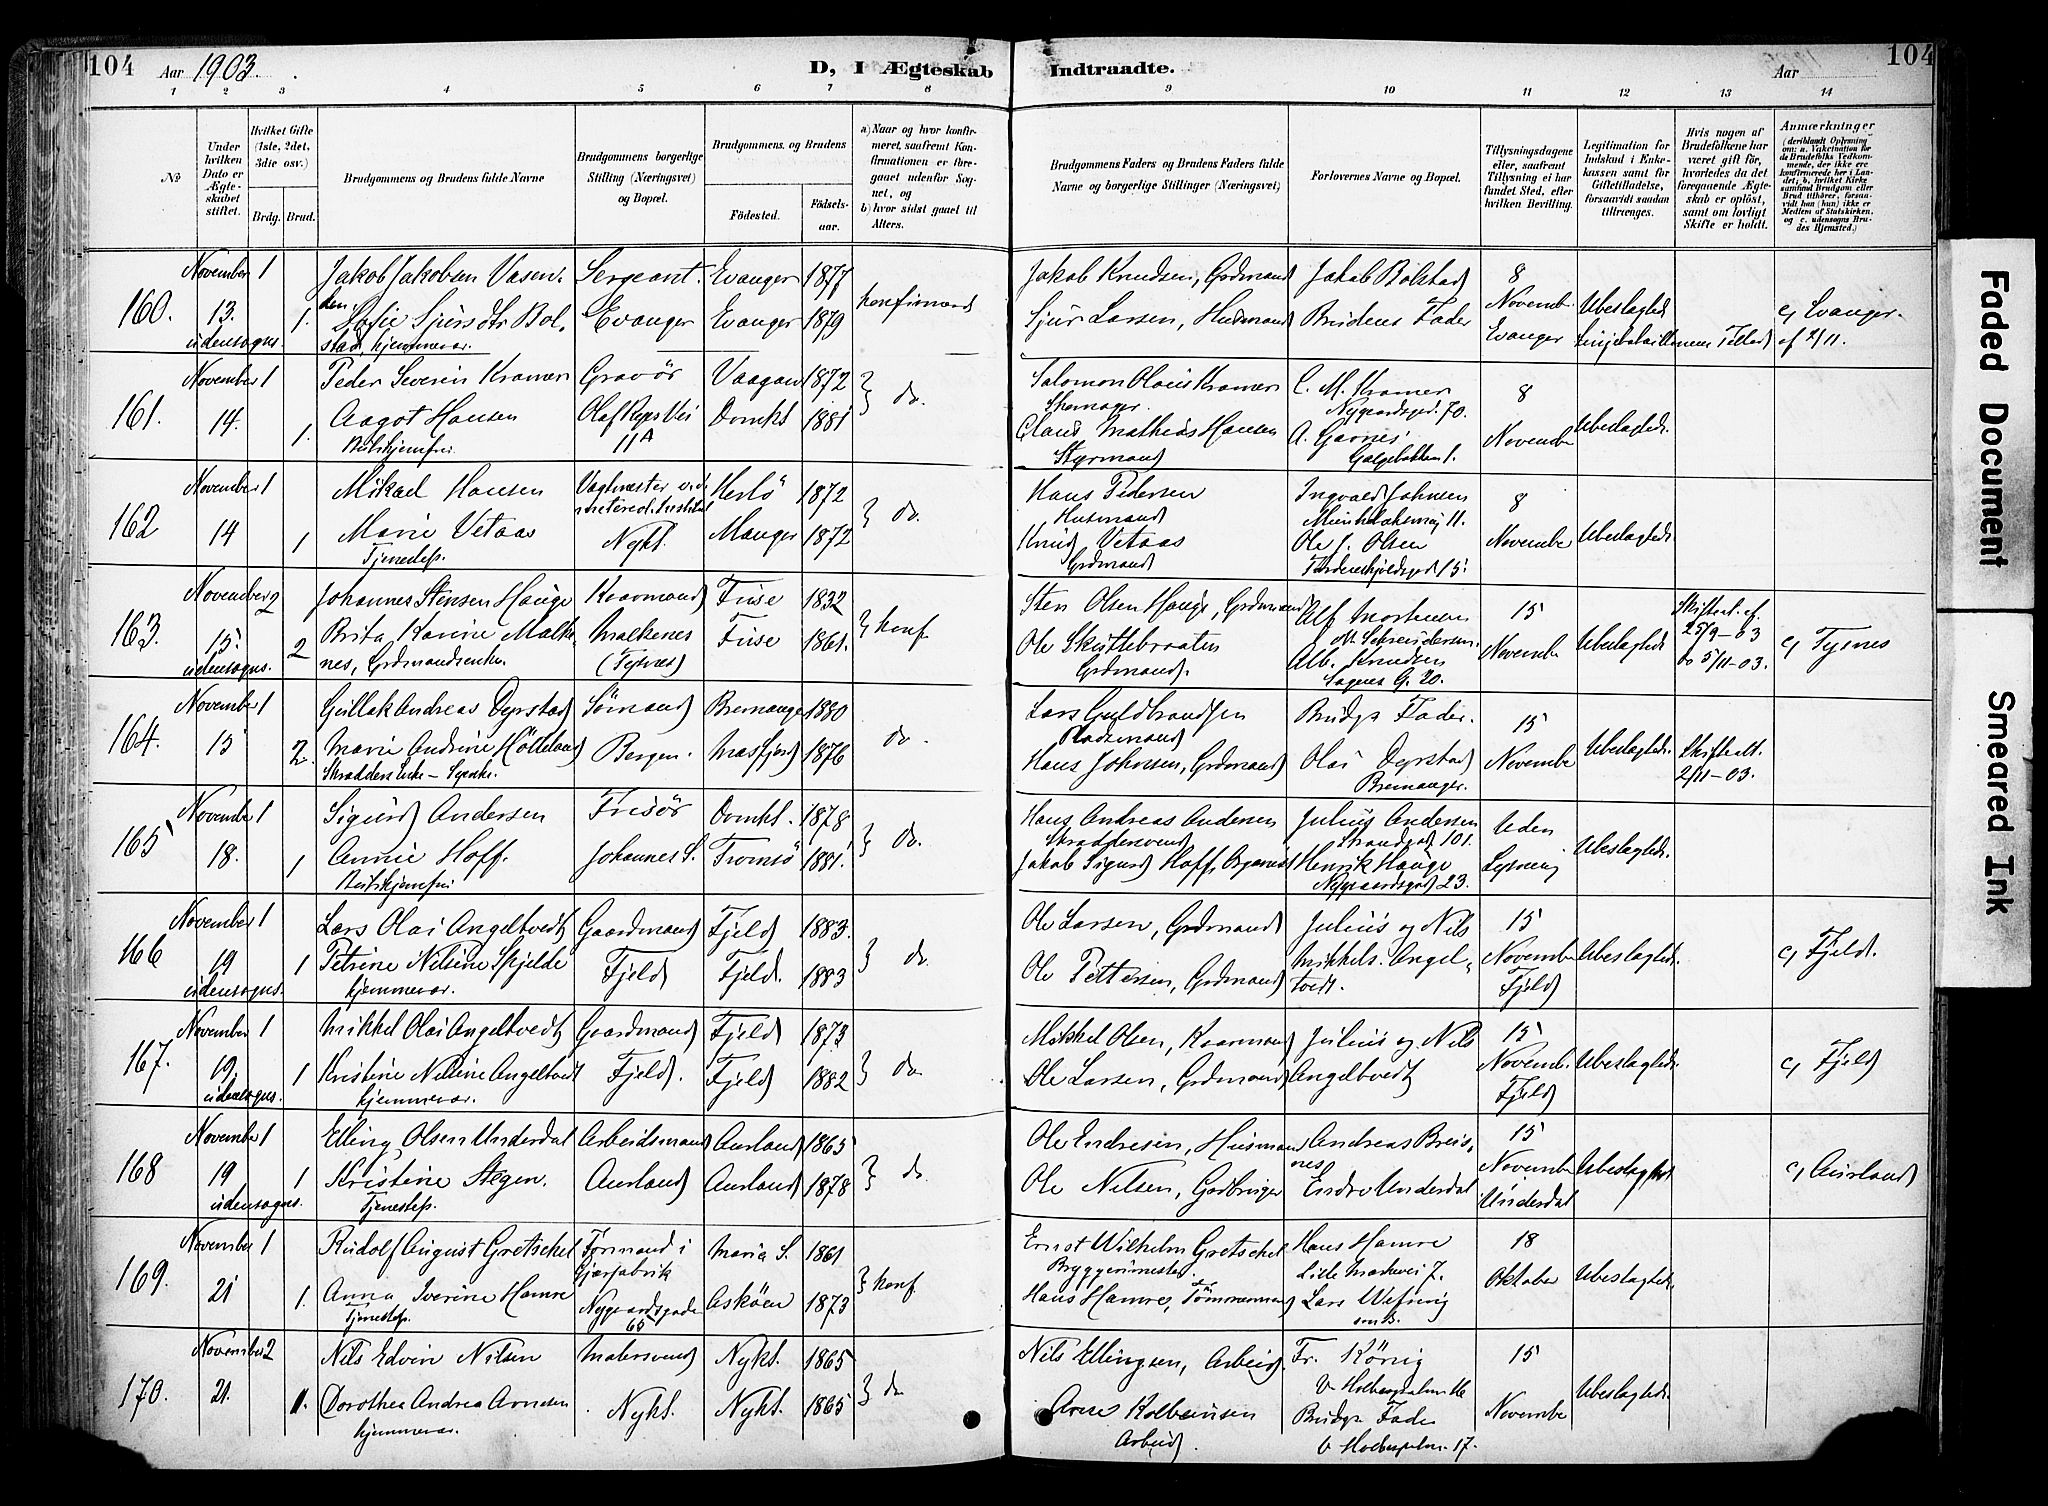 104 Aar 1903. D, I Ægteskab Indtraadte. Aar 104
1 2 3 4 5 6 7 8 9 10 11 12 13 14
No
Under hvilken Dato er Ægteskabet stiftet.
Hvilket Gifte (1ste, 2det, 3die osv.)
Brdg. Brud.
Brudgommens og Brudens fulde Navne
Brudgommens borgerlige Stilling (Næringsvei) og Bopæl.
Brudgommens og Brudens
Födested. Födselsaar.
a) Naar og hvor konfirmeret, saafremt Konfirmationen er foregaaet udenfor Sognet, og
b) hvor sidst gaaet til Alters.
Brudgommens Faders og Brudens Faders fulde Navne og borgerlige Stillinger (Næringsvei)
Forlovernes Navne og Bopæl.
Tillysningsdagene eller, saafremt Tillysning ei har fundet Sted, efter hvilken Bevilling.
Legitimation for Indskud i Enkekassen samt for Giftetilladelse, forsaavidt saadan tiltrænges.
Hvis nogen af Brudefolkene har været gift för, hvorledes da det foregaaende Ægteskab er oplöst, samt om lovligt Skifte er holdt.
Anmærkninger
160. November 13. udensogns. 1 1.
Jakob Jakobsen Vasenden Sergeant. Evanger 1877
Sofie Sjursdtr Bolstad, hjemmevær. Evanger Evanger 1879
konfirmered
Jakob Knudsen, Grdmand Jakob Bolstad
Sjur Larsen, Husmand Brudens Fader
8 November Evanger Ubeslægted. c, Evanger. af 2/11.
161. November 14. 1 1.
Peder Severin Kramer Gravör Vaagan 1872
Aagot Hansen Olaf Ryes Vei 11A Domkt 1881
} do.
Salomon Olaus Kramer Skomager. C. M. Kramer Nygaardsgd. 70.
Claus Mathias Hansen Styrmand A. Garnes Galgebakken 1.
8 November Ubeslægtede.
162 November 14 1 1
Mikael Hansen Herlö 1872
Marie Vetaas Tjenestep. Nykt. Manger 1872
} do.
Hans Pedersen Husmand Ingvald Johnsen 11.
Knud Vetaas Grdmand Ole J. Olsen Tordenskjoldsgd 15
8 November Ubeslægtede
163. November 15. udensogns. 2 2
Johannes Stensen Hauge Kaarmand Fuse 1832
Brita Karine Malkenes, Grdmandsenke. Malkenes (Tysnes) Fuse 1861.
} konf
Sten Olsen Hauge, Grdmand Alf Mortensen
Ole Skutlebraaten Grdmand. Alb. Knudsen Sagenes G. 20.
15 November Ubeslægted Skifteat. af 25/9-03 do 5/11-03. c, Tysnes
164. November 15 1 2.
Gullak Andreas Dyrstad Sömand Bremanger 1880
Marie Andrine Höiteland Bergen. Masfjord 1876
do.
Lars Guldbrandsen Pladsmand Brudgs Fader.
Hans Johnsen, Grdmand Olai Dyrstad Bremanger.
15 November Ubeslægtede Skifteatt. 2/11-03.
165 November 18. 1 1
Sigurd Andersen Frisör Domkt. 1878
Annie Hoff. Johannes S. Tromsö 1881.
} do.
Hans Andreas Andersen Skræddersvend Julius Andersen Strandgd 101.
Jakob Sigurd Hoff, Organist Henrik Hauge Nygaardsgd 23.
Uden Lysning Ubeslægtede.
166 November 19 udensogns. 1 1
Lars Olai Angeltvedt Gaardmand Fjeld 1883.
Petrine Nilsine Skjelde hjemmevær. Fjeld Fjeld. 1883
} do
Ole Larsen, Grdmand Julius og Nils
Ole Pettersen, Grdmand Mikkels. Angeltvedt.
15 November Fjeld Ubeslægtede. c, Fjeld.
167. November 19. udensogns. 1 1
Mikkel Olai Angeltvedt Gaardmand Fjeld 1873
Kristine Nilsine Angeltvedt hjemmevær. Fjeld. Fjeld 1882
} do.
Mikkel Olsen, Kaarmand Julius og Nils
Ole Larsen, Grdmand Angeltvedt
15 Novemb. Fjeld Ubeslægtede. c, Fjeld
168 November 19 udensogns. 1 1
Elling Olsen Underdal Arbeidsmand Aurland 1865
Kristine Stegen. Tjenestep. Aurland Aurland 1878
} do
Ole Endresen, Husmand Andreas Breisnes
Ole Nilsen, Grdbruger Endre Underdal
15 November Underdal Ubeslægtet c, Aurland
169. November 21 1 1.
Rudolf August Gretschel Formand i Gjærfabrik Maria S. 1861
Anna Iverine Hamre Tjenestep. Nygaardsgade 65 Asköen 1873
} konf
Ernst Wilhelm Gretschel Hans Hamre Lille Markevei 7.
Hans Hamre, Tömmermand Lars
18 Oktober Ubeslægtede
170. November 21. 2 1.
Nils Edvin Nilsen Malersvend Nykt. 1865
Dorothea Andrea Arnesen hjemmevær. Nykt. Nykt. 1865
} do
Nils Ellingsen, Arbeid. Fr. König
Arne Kolbeinsen Arbeid. Brudgs Fader 17.
15 November Ubeslægtede.
Faded Document
Smeared Ink